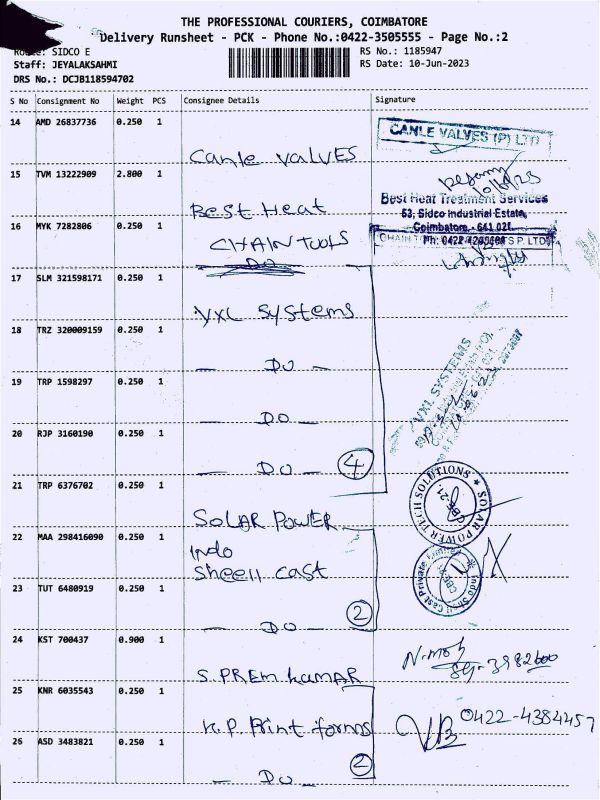 THE PROFESSIONAL COURIERS, COIMBATORE
Delivery Runsheet - PCK - Phone No.:0422-3505555 - Page No.:2
SIDCO E
RS No.: 1185947
Staff: JEYALAKSAHMI
RS Date: 10-Jun-2023
DRS No.: DCJB118594702
S No Consignment No Weight PCS Consignee Details Signature
14 AMD 26837736 0.250 1
CANLE VALVES (P) LTD
Canle valves
15 TVM 13222909 2.800 1
Best Heat
Best Heat Treatment Services
53, Sidco Industrial Estate,
Coimbatore - 641 021.
16 MYK 7282806 0.250 1
CHAIN TOOLS
DO
17 SLM 321598171 0.250 1
VXL SYSTEMS
VXL Systems
18 TRZ 320009159 0.250 1
- DO -
19 TRP 1598297 0.250 1
- DO -
20 RJP 3160190 0.250 1
- DO - 4
21 TRP 6376702 0.250 1
SOLAR POWER TECH SOLUTIONS
CBE-21.
SOLAR POWER
22 MAA 298416090 0.250 1
Indo
Sheell cast
23 TUT 6480919 0.250 1
- DO - 2
24 KST 700437 0.900 1
S. PREM kumar
25 KNR 6035543 0.250 1
K.P. Print forms
0422-4384457
26 ASD 3483821 0.250 1
- DO - 2